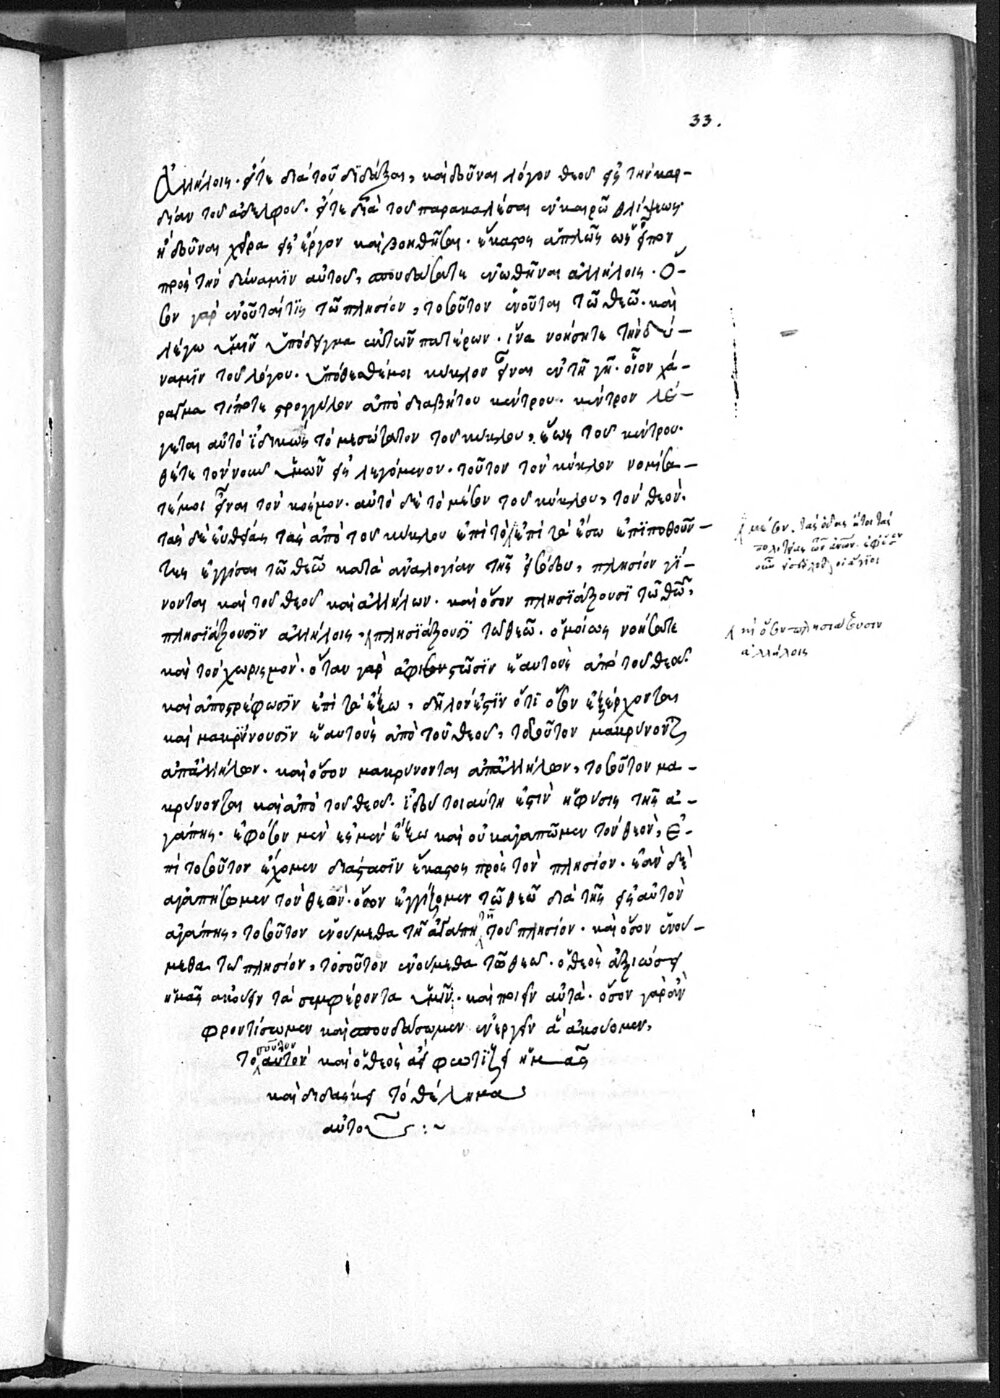 33.
ἀλλήλοις. εἴτε διὰ τοῦ διδάξαι, καὶ δοῦναι λόγον θεοῦ εἰς τὴν καρ-
δίαν τοῦ ἀδελφοῦ. εἴτε διὰ τοῦ παρακαλέσαι ἐν καιρῷ θλίψεως
ἢ δοῦναι χεῖρα εἰς ἔργον καὶ βοηθῆσαι. ἕκαστος ἁπλῶς ὡς εἶπον
πρὸς τὴν δύναμϊν αὐτοῦ, σπουδάσατε ἑνωθῆναι ἀλλήλοις. Ὅ-
σον γὰρ ἑνοῦταί τϊς τῷ πλησίον, τοσοῦτον ἑνοῦται τῷ θεῷ. καὶ
λέγω ὑμῖν ὑπόδειγμα ἐκ τῶν πατέρων. ἵνα νοήσητε τὴν δύ-
ναμϊν τοῦ λόγου. ὑπόθεσθέ μοι κύκλον εἶναι ἐν τῇ γῇ. οἷον χά-
ραγμα τίποτε στρογγύλον ἀπὸ διαβήτου κέντρου. κέντρον λέ-
γεται αὐτὸ ἰδικῶς τὸ μεσώτατον τοῦ κύκλου, ἕως τοῦ κέντρου.
θέτε τὸν νοῦν ὑμῶν εἰς λεγόμενον. τοῦτον τὸν κύκλον νομίσα-
τέ μοι εἶναι τὸν κόσμον. αὐτὸ δὲ τὸ μέσον τοῦ κύκλου, τὸν θεόν.
τὰς δὲ εὐθείας τὰς ἀπὸ τοῦ κύκλου ἐπὶ τὸ ἐπὶ τὰ ἔσω ἐπϊποθοῦν-
τες ἐγγίσαι τῷ θεῷ κατὰ ἀναλογίαν τῆς εἰσόδου, πλησίον γί-
νονται καὶ τοῦ θεοῦ καὶ ἀλλήλων. καὶ ὅσον πλησϊάζουσϊ τῷ θεῷ,
πλησϊάζουσϊν ἀλλήλοις, πλησϊάζουσϊ τῷ θεῷ. ὁμοίως νοήσατε
καὶ τὸν χωρισμόν. ὅταν γὰρ ἀφιστῶσϊν ἑαυτοὺς ἀπὸ τοῦ θεοῦ
καὶ ἀποστρέφωσϊν ἐπὶ τὰ ἔξω, δῆλόν ἐστϊν ὅτϊ ὅσον ἐξέρχονται
καὶ μακρύνουσϊν ἑαυτοὺς ἀπὸ τοῦ θεοῦ, τοσοῦτον μακρύνονται
ἀπ' ἀλλήλων. καὶ ὅσον μακρύνονται ἀπ' ἀλλήλων, τοσοῦτον μα-
κρύνονται καὶ ἀπὸ τοῦ θεοῦ. ἰδοὺ τοιαύτη ἐστὶν ἡ φύσις τῆς ἀ-
γάπης. ἐφόσον μέν ἐσμεν ἔξω καὶ οὐκ ἀγαπῶμεν τὸν θεόν, ἐ-
πὶ τοσοῦτον ἔχομεν διάστασϊν ἕκαστος πρὸς τὸν πλησίον. ἐὰν δὲ
ἀγαπήσωμεν τὸν θεόν. ὅσον ἐγγίζομεν τῷ θεῷ διὰ τῆς εἰς αὐτὸν
ἀγάπης, τοσοῦτον ἑνούμεθα τῇ ἀγάπῃ τῇ τοῦ πλησίον. καὶ ὅσον ἑνού-
μεθα τῷ πλησίον, τοσοῦτον ἑνούμεθα τῷ θεῷ. ὁ θεὸς ἀξιώσει
ἡμᾶς ἀκούειν τὰ συμφέροντα ὑμῖν. καὶ ποιεῖν αὐτά. ὅσον γὰρ ἂν
φροντίσωμεν καὶ σπουδάσωμεν ἐνεργεῖν ἃ ἀκούομεν,
τοσοῦτον καὶ ὁ θεὸς ἀεὶ φωτίζει ἡμᾶς
καὶ διδάσκει τὸ θέλημα
αὐτοῦ :~
μέσον. τὰς ὁδοὺς ἤτοι τὰς
πολιτείας τῶν ἀνθρώπων. ἐφόσον
οὖν εἰσέλθωσιν οἱ ἅγιοι
καὶ ὅσον πλησιάζουσιν
ἀλλήλοις